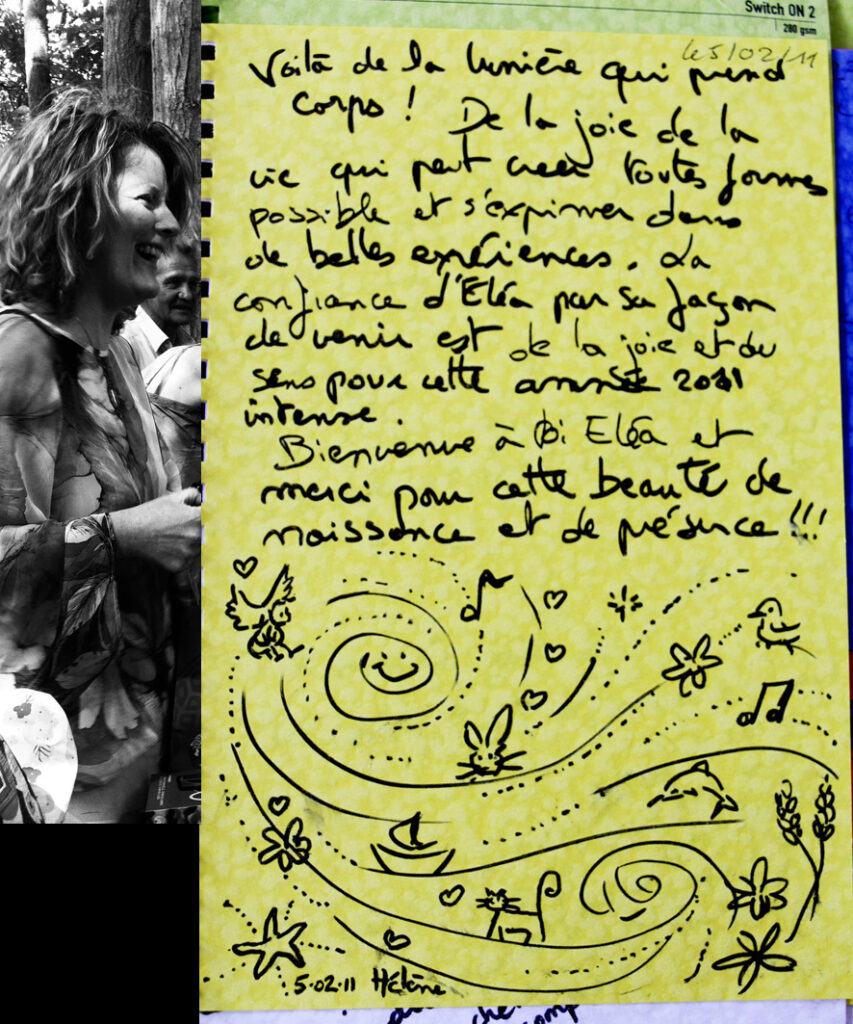 Switch ON 2
280 gsm
5/02/11
Voilà de la lumière qui prend
corps !
De la joie de la
vie qui peut créer toutes formes
possible et s'exprimer dans
de belles expériences. La
confiance d'Eléa par sa façon
de venir est de la joie et du
sens pour cette année 2011
intense.
Bienvenue à Eléa et
merci pour cette beauté de
naissance et de présence !!!
5.02.11 Hélène